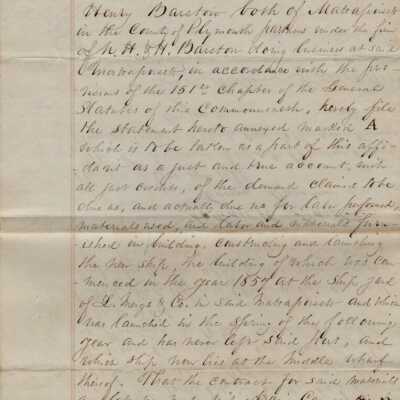 Henry Barstow both of Mattapoisett
in the County of Plymouth partners under the firm
of N. H. & H. Barstow doing business at said
Mattapoisett, in accordance with the pro-
visions of the 151st chapter of the General
Statutes of this Commonwealth, hereby file
the statement hereto annexed marked A
which is to be taken as a part of this affi-
davit as a just and true account, with
all just credits, of the demand claimed to be
due us, and actually due us for labor performed,
materials used, and labor and materials furn-
ished in building, constructing and launching
the new ship, the building of which was com-
menced in the year 1857 at the ship yard
of L. Meigs & Co. in said Mattapoisett and which
was launched in the Spring of the following
year and has never left said port, and
which ship now lies at the middle wharf
thereof. That the contract for said materials